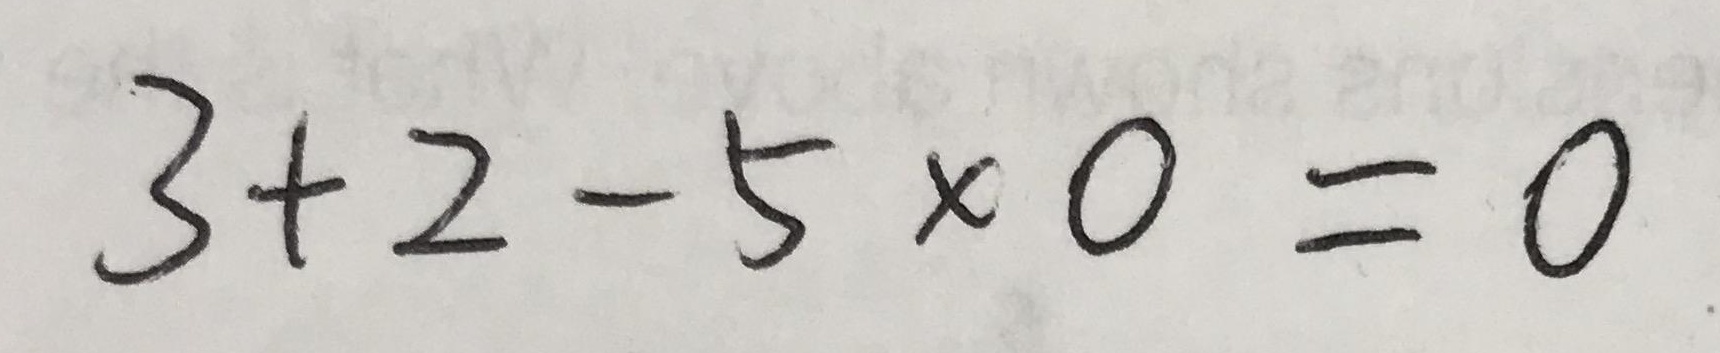 3+2-5×0=0